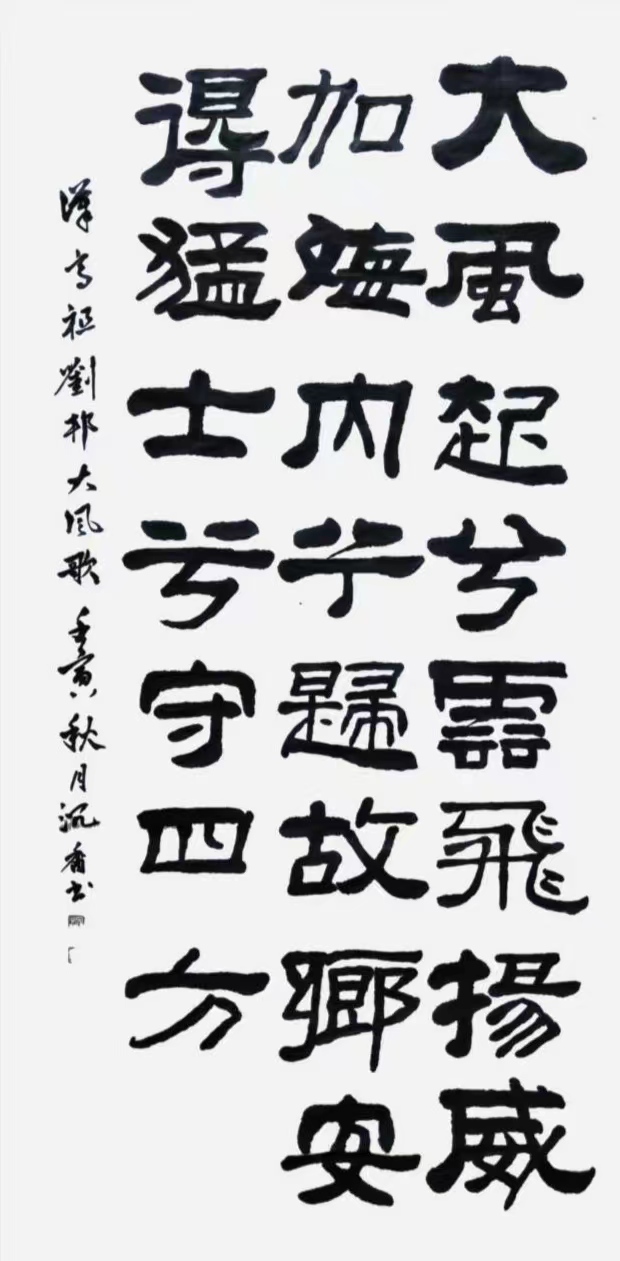 大風起兮雲飛揚威
加海内兮歸故鄉安
得猛士兮守四方
漢高祖劉邦大風歌 壬寅秋月沉香书